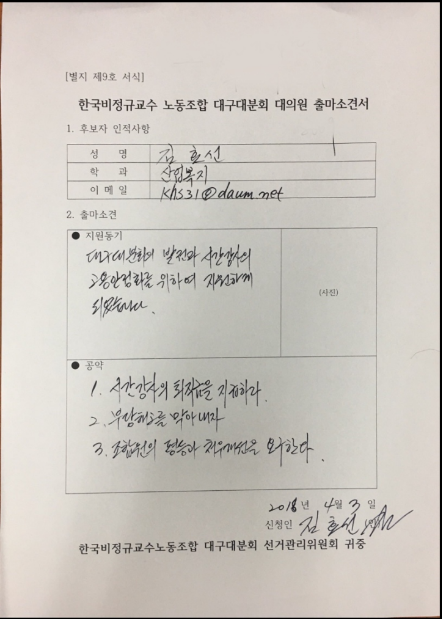 [별지 제9호 서식]
한국비정규교수 노동조합 대구대분회 대의원 출마소견서
1. 후보자 인적사항
성 명 김효선
학 과 산업복지
이메일 khs31@daum.net
2. 출마소견
● 지원동기
대구대분회의 발전과 시간강사의
고용안정화를 위하여 지원하게
되었습니다.
(사진)
● 공약
1. 시간강사의 퇴직금을 지급하라.
2. 부당해고를 막아내자
3. 조합원의 평등과 처우개선을 요구한다.
2018년 4월 3일
신청인 김효선
한국비정규교수노동조합 대구대분회 선거관리위원회 귀중